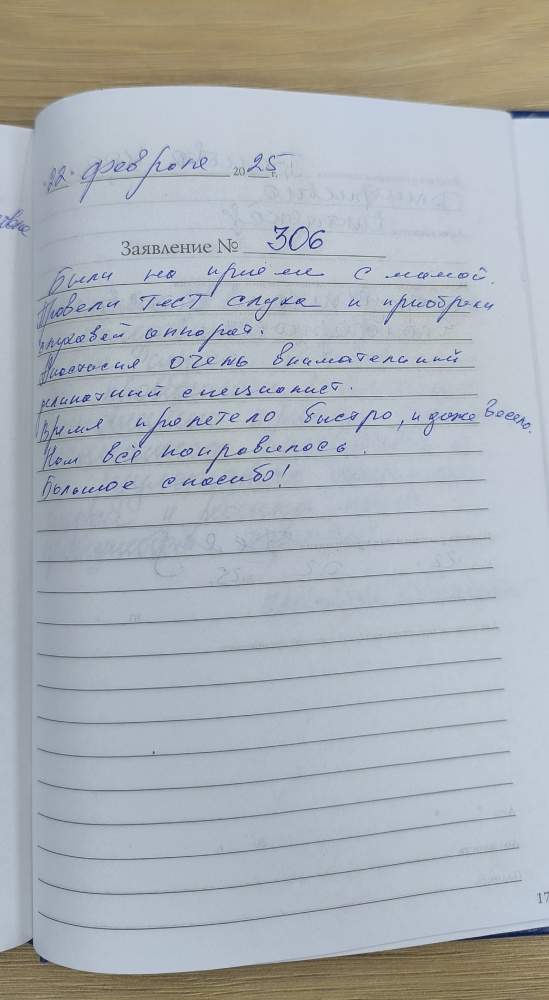 "22" февраля 2025 г.
Заявление № 306
Были на приёме с мамой.
Провели тест слуха и приобрели
слуховой аппарат.
Анастасия очень внимательный
деликатный специалист.
Время пролетело быстро, и даже весело.
Нам всё понравилось.
Большое спасибо!
17